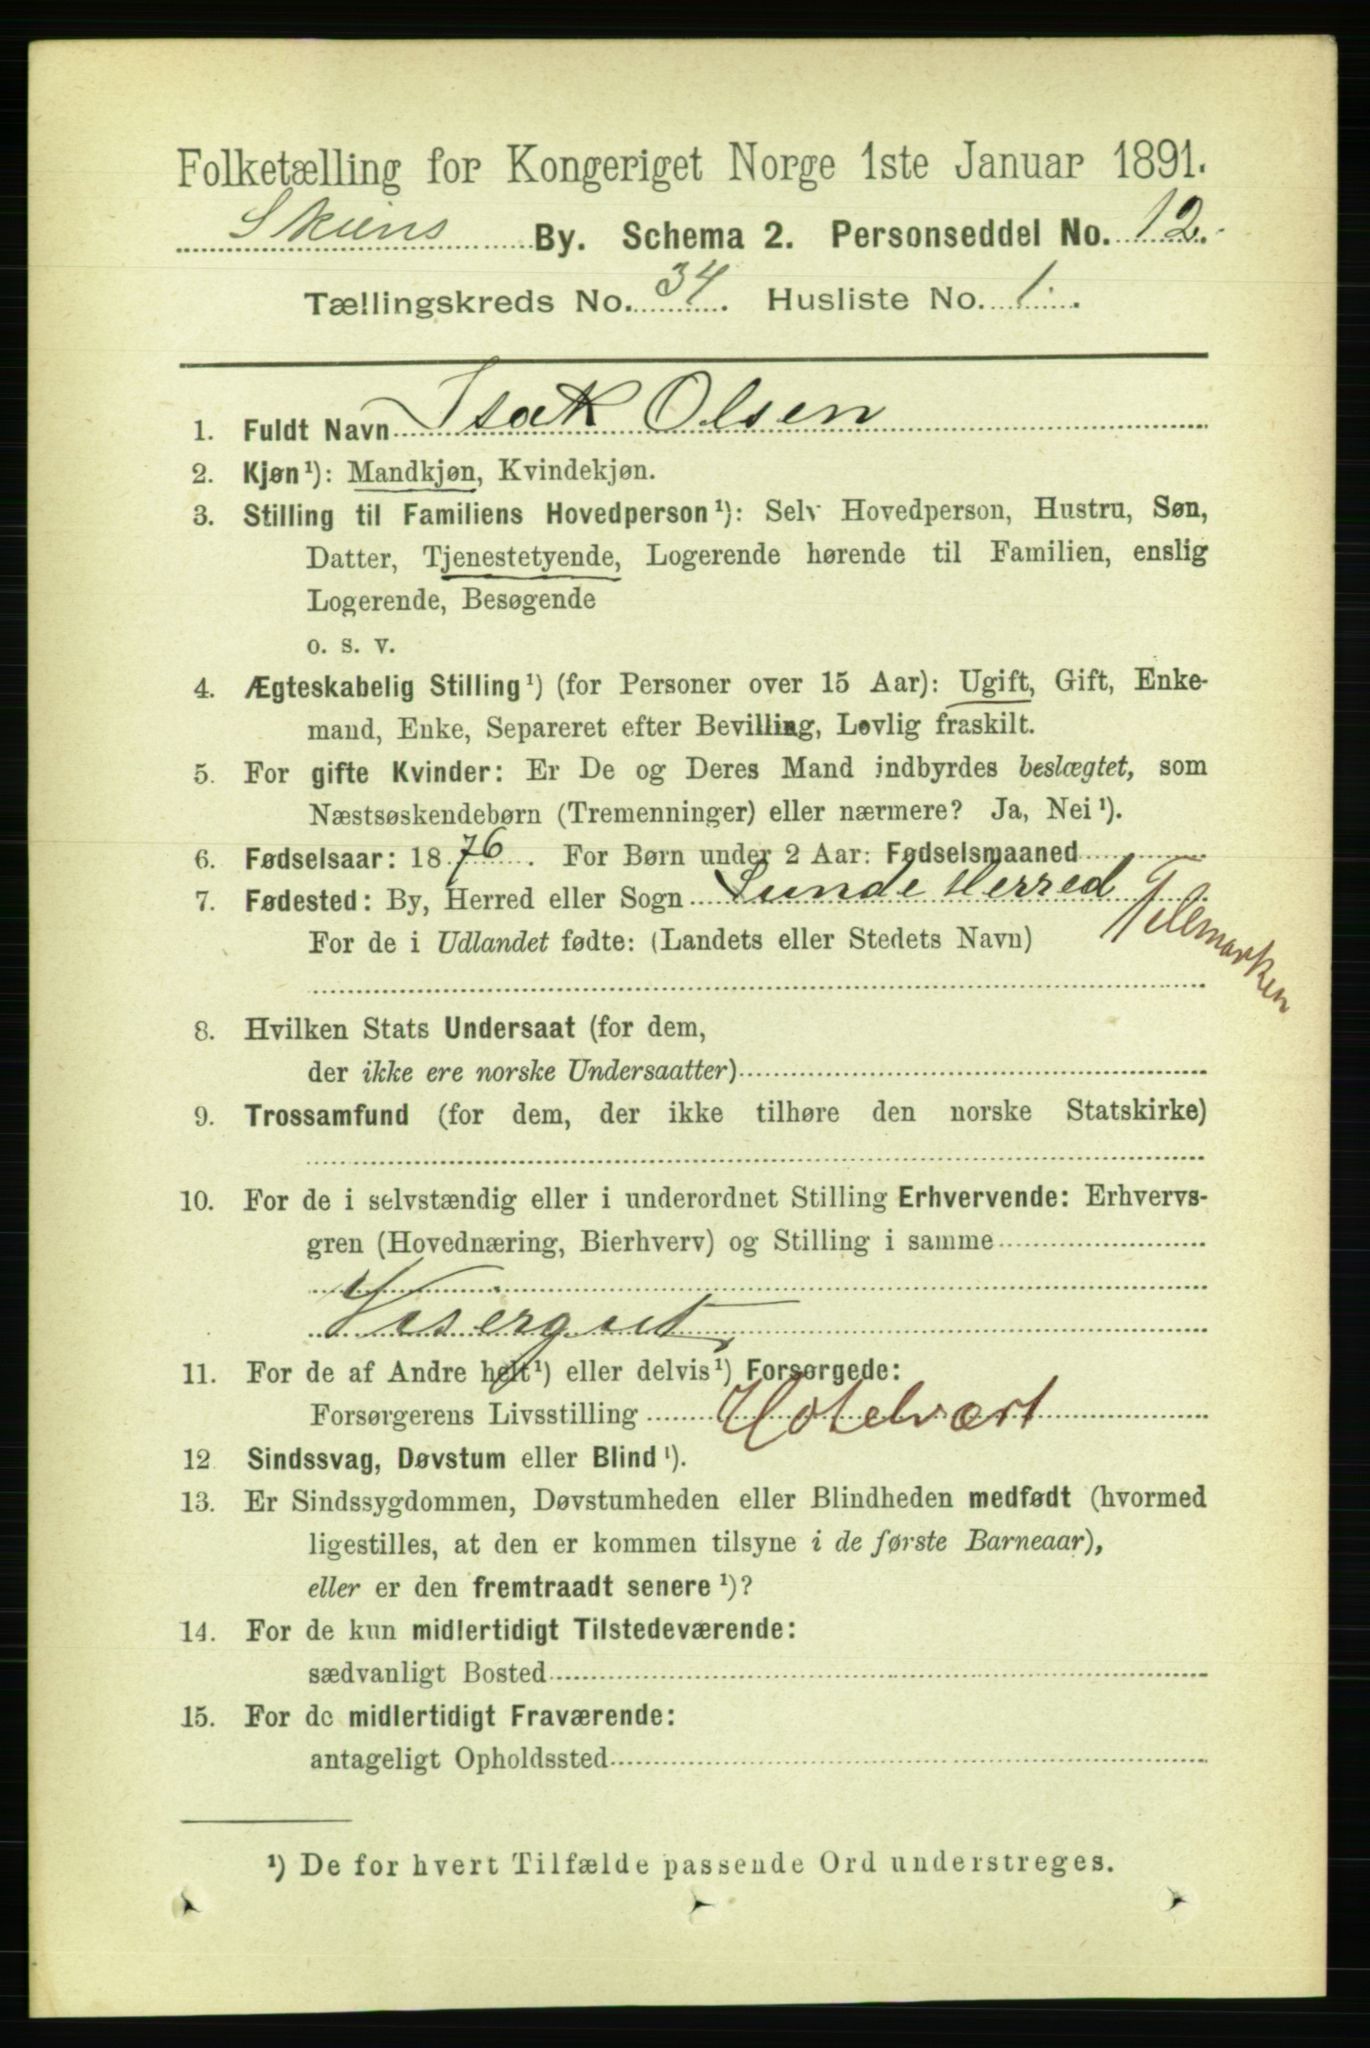 Folketælling for Kongeriget Norge 1ste Januar 1891.
Skiens By. Schema 2. Personseddel No. 12.
Tællingskreds No. 34. Husliste No. 1.
1. Fuldt Navn Isak Olsen
2. Kjøn¹): Mandkjøn, Kvindekjøn.
3. Stilling til Familiens Hovedperson¹): Selv Hovedperson, Hustru, Søn,
Datter, Tjenestetyende, Logerende hørende til Familien, enslig
Logerende, Besøgende
o. s. v.
4. Ægteskabelig Stilling¹) (for Personer over 15 Aar): Ugift, Gift, Enke-
mand, Enke, Separeret efter Bevilling, Lovlig fraskilt.
5. For gifte Kvinder: Er De og Deres Mand indbyrdes beslægtet, som
Næstsøskendebørn (Tremenninger) eller nærmere? Ja, Nei¹).
6. Fødselsaar: 1876. For Børn under 2 Aar: Fødselsmaaned
7. Fødested: By, Herred eller Sogn Lunde Herred Telemarken
For de i Udlandet fødte: (Landets eller Stedets Navn)
8. Hvilken Stats Undersaat (for dem,
der ikke ere norske Undersaatter)
9. Trossamfund (for dem, der ikke tilhøre den norske Statskirke)
10. For de i selvstændig eller i underordnet Stilling Erhvervende: Erhvervs-
gren (Hovednæring, Bierhverv) og Stilling i samme
Visergut
11. For de af Andre helt¹) eller delvis¹) Forsørgede:
Forsørgerens Livsstilling Hotelvært
12 Sindssvag, Døvstum eller Blind¹).
13. Er Sindssygdommen, Døvstumheden eller Blindheden medfødt (hvormed
ligestilles, at den er kommen tilsyne i de første Barneaar),
eller er den fremtraadt senere¹)?
14. For de kun midlertidigt Tilstedeværende:
sædvanligt Bosted
15. For de midlertidigt Fraværende:
antageligt Opholdssted
¹) De for hvert Tilfælde passende Ord understreges.